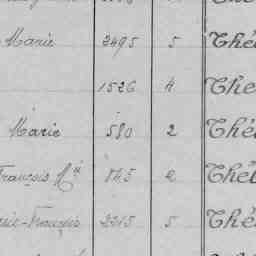 Marie 2495 5 Thé
1526 4 Thé
Marie 580 2 Thé
François Mie 845 2 Thé
rie-François 2215 5 Thé